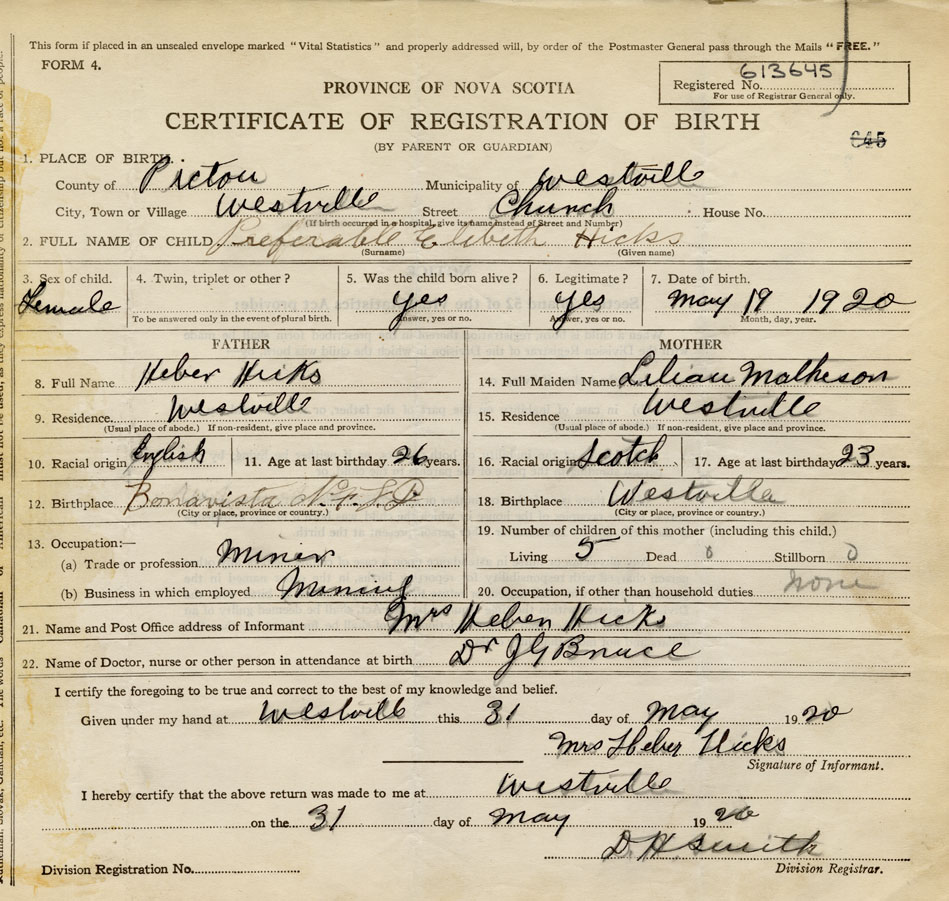 This form if placed in an unsealed envelope marked "Vital Statistics" and properly addressed will, by order of the Postmaster General pass through the Mails "FREE."
FORM 4.
613645
Registered No.
For use of Registrar General only.
PROVINCE OF NOVA SCOTIA
CERTIFICATE OF REGISTRATION OF BIRTH
645
(BY PARENT OR GUARDIAN)
1. PLACE OF BIRTH.
County of Pictou Municipality of Westville
City, Town or Village Westville Street Church House No.
(If birth occurred in a hospital, give its name instead of Street and Number)
2. FULL NAME OF CHILD Preferable Elibeth Hicks
(Surname) (Given name)
3. Sex of child. 4. Twin, triplet or other? 5. Was the child born alive? 6. Legitimate? 7. Date of birth.
Female yes yes May 19 1920
To be answered only in the event of plural birth. Answer, yes or no. Answer, yes or no. Month, day, year.
FATHER MOTHER
8. Full Name Heber Hicks 14. Full Maiden Name Lilian Matheson
9. Residence Westville 15. Residence Westville
(Usual place of abode.) If non-resident, give place and province. (Usual place of abode.) If non-resident, give place and province.
10. Racial origin English 11. Age at last birthday 26 years. 16. Racial origin Scotch 17. Age at last birthday 23 years.
12. Birthplace Bonavista N.F.L.D 18. Birthplace Westville
(City or place, province or country.) (City or place, province or country.)
13. Occupation:— 19. Number of children of this mother (including this child.)
(a) Trade or profession Miner Living 5 Dead 0 Stillborn 0
(b) Business in which employed Mining 20. Occupation, if other than household duties None
21. Name and Post Office address of Informant Mrs Heber Hicks
22. Name of Doctor, nurse or other person in attendance at birth Dr J G Bruce
I certify the foregoing to be true and correct to the best of my knowledge and belief.
Given under my hand at Westvill this 31 day of May 1920
Mrs Heber Hicks
Signature of Informant.
I hereby certify that the above return was made to me at Westville
on the 31 day of May 1920
D H Smith
Division Registration No. Division Registrar.